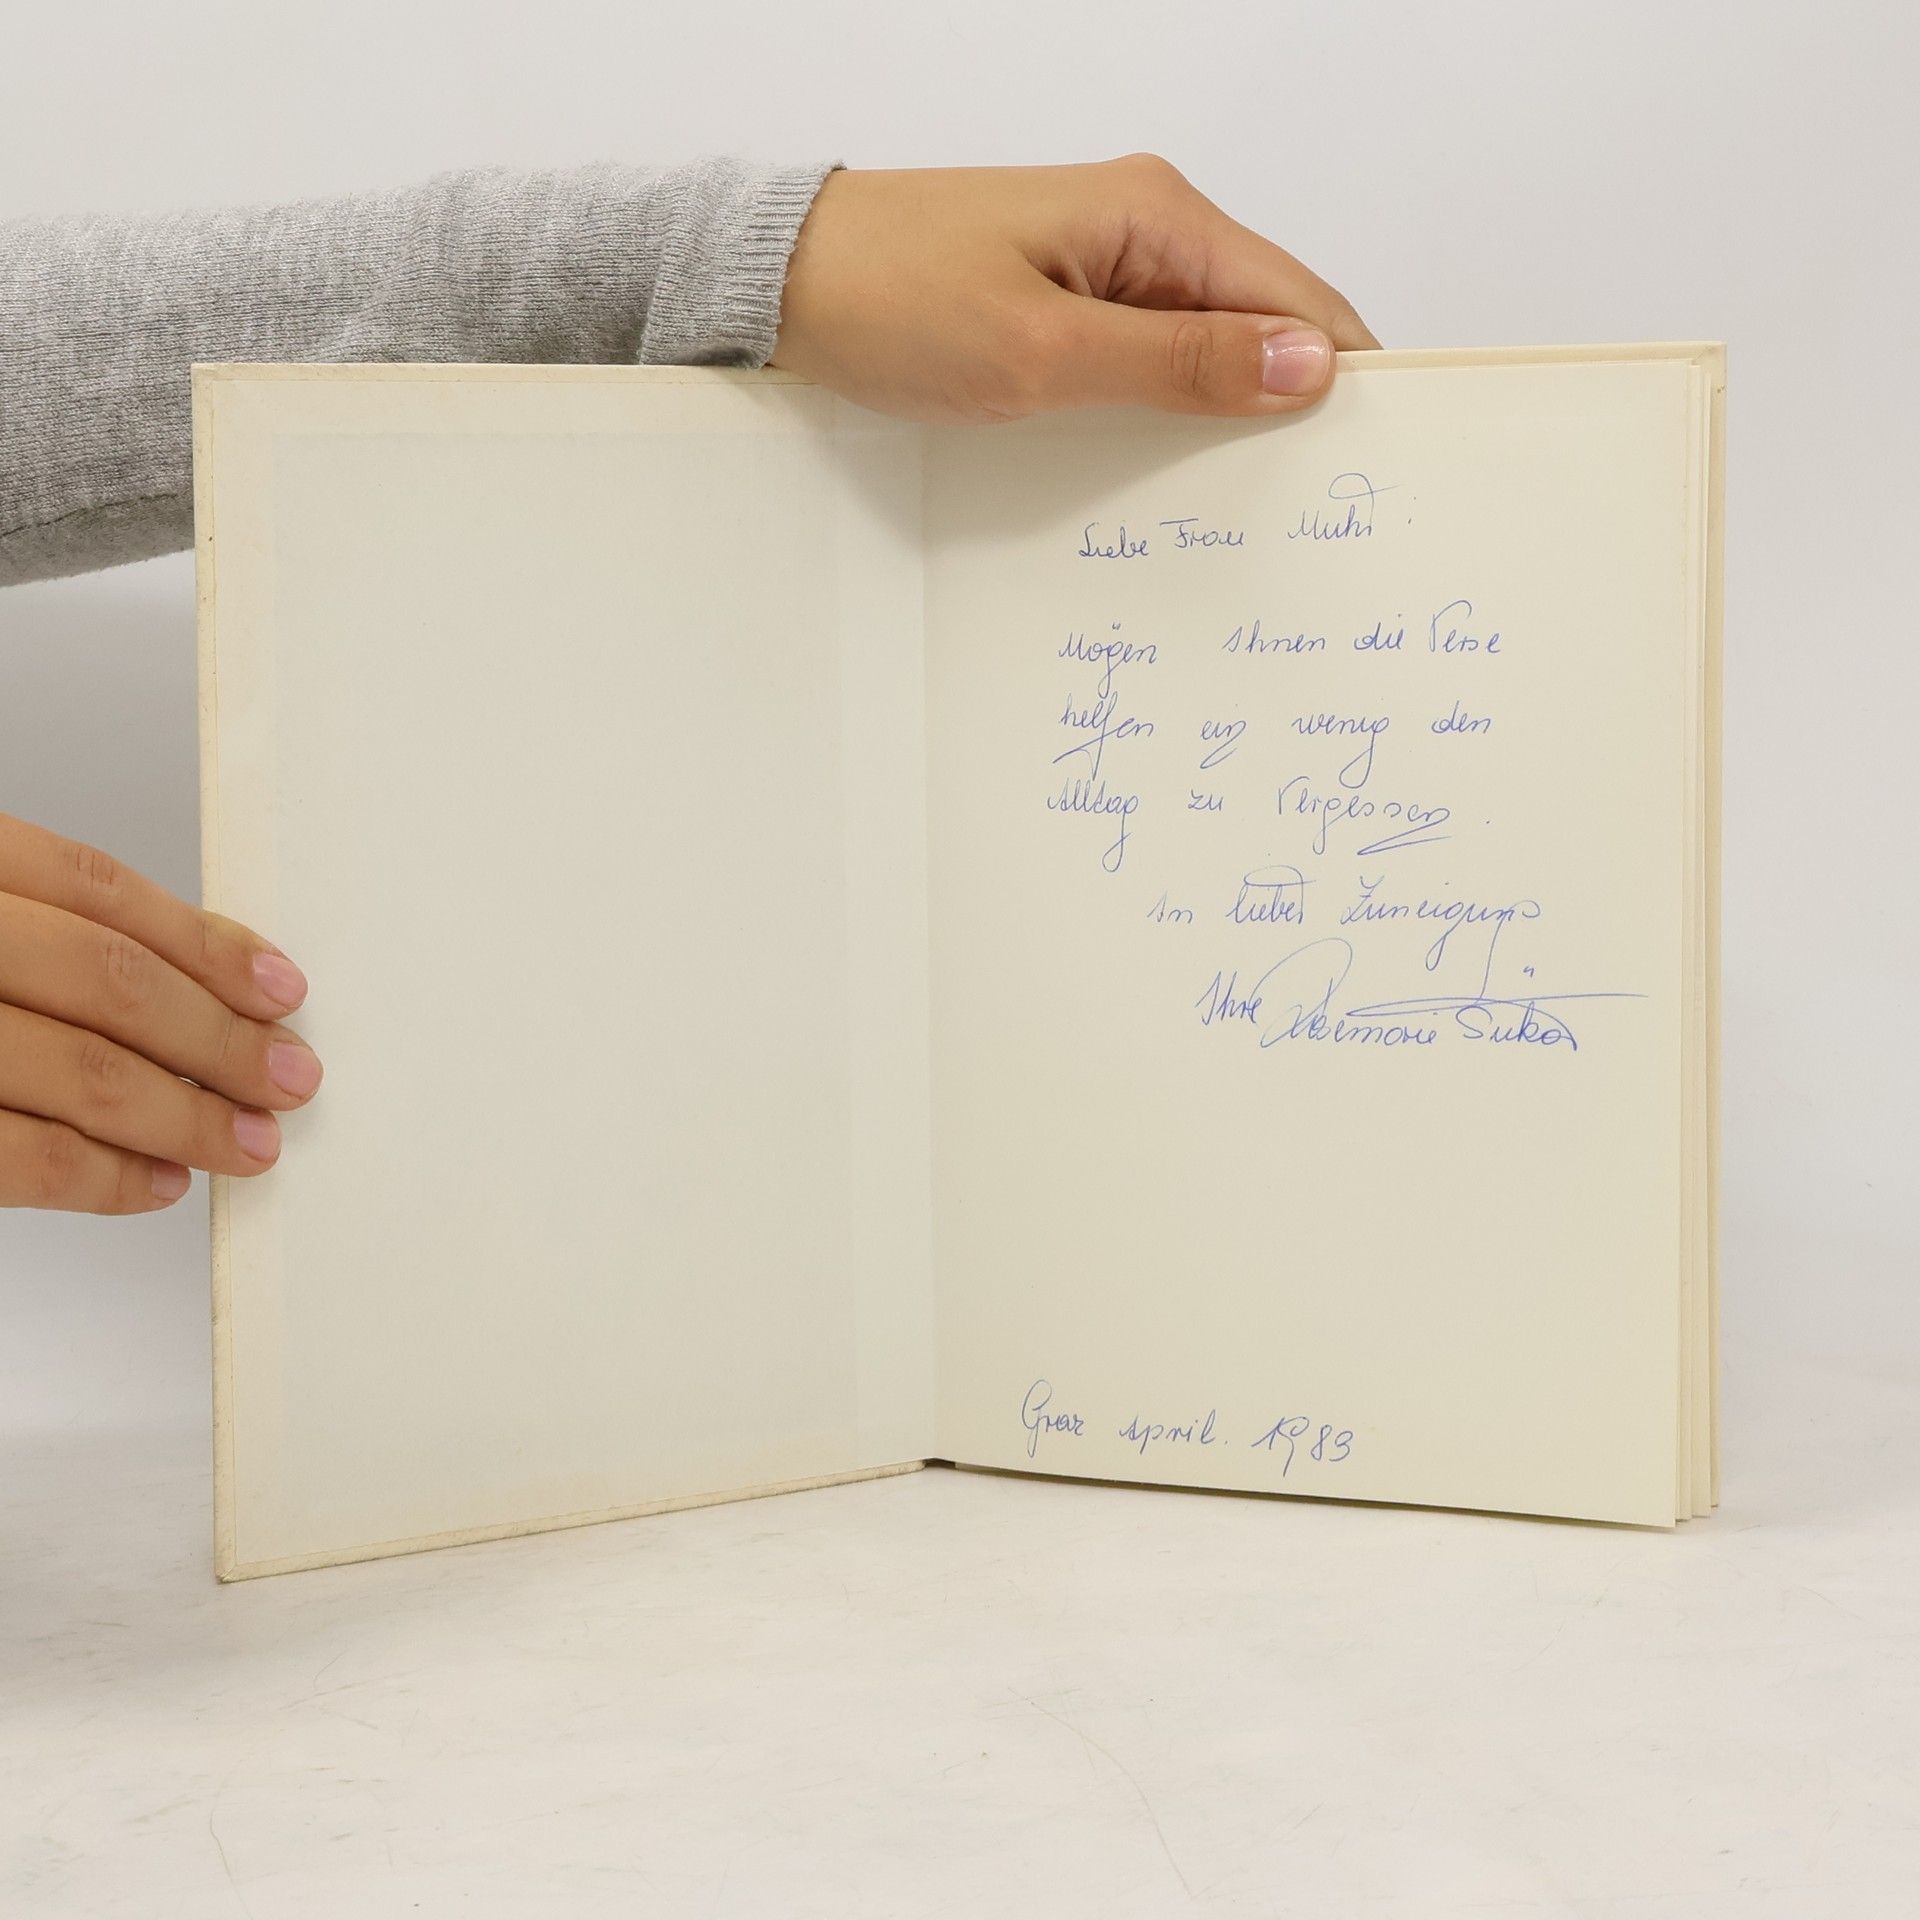 Liebe Frau
Mögen Ihnen die Verse
helfen ein wenig den
Alltag zu Vergessen.
In lieber Zuneigung
Ihre Rosemarie
Graz April. 1983